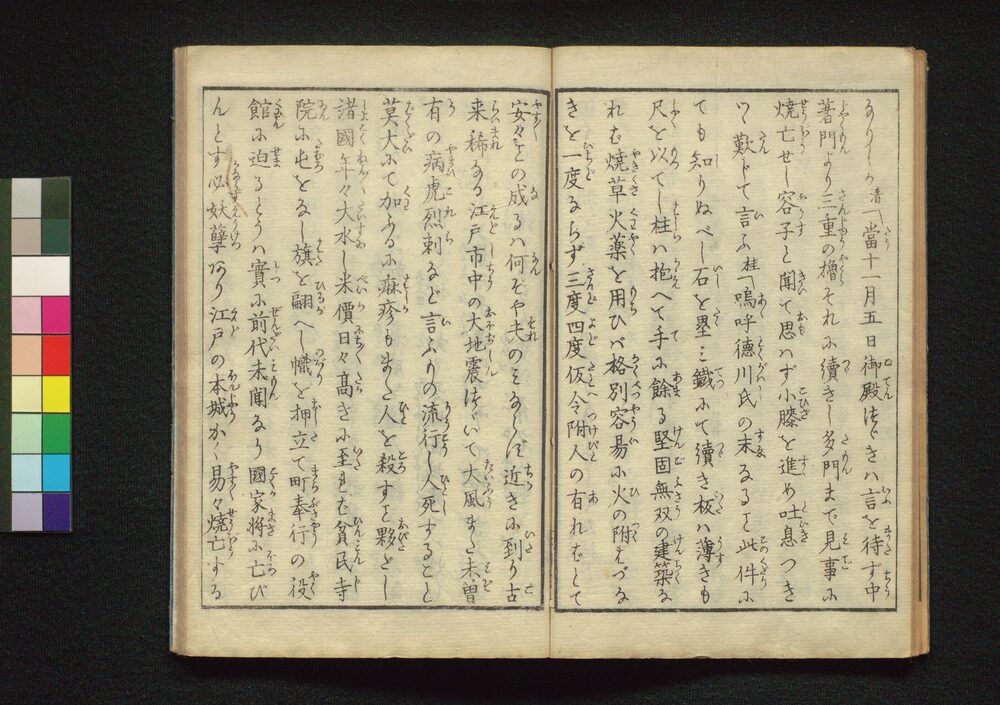 なりしが 清「當十一月五日御殿続きハ言を待ず中
著門より三重の櫓それに續きし多門まで見事に
焼亡せし容子と聞て思ハず小膝を進め吐息つき
つゝ歎じて言ふ 桂「嗚呼徳川氏の末なること此件に
ても知りぬべし石を塁ミ鐵にて續き板ハ薄きも
尺を以てし柱ハ抱へて手に餘る堅固無双の建築な
れば焼草火薬を用ひバ格別容易に火の附まづな
きを一度ならず三度四度仮令附人の有ればとて
安々との成るハ何ぞや夫のミならず近きに到り古
来稀なる江戸市中の大地震続いて大風また未曽
有の病虎烈刺など言ふもの流行し人死すること
莫大にて加ふるに麻疹もまた人を殺すこと夥とし
諸國年々大水し米價日々髙きに至れば貧民寺
院に屯をなし旗を翩へし幟を押立て町奉行の役
館に迫るとうハ實に前代未聞なり國家将に亡び
んとす必妖孽あり江戸の本城かく易々焼亡する